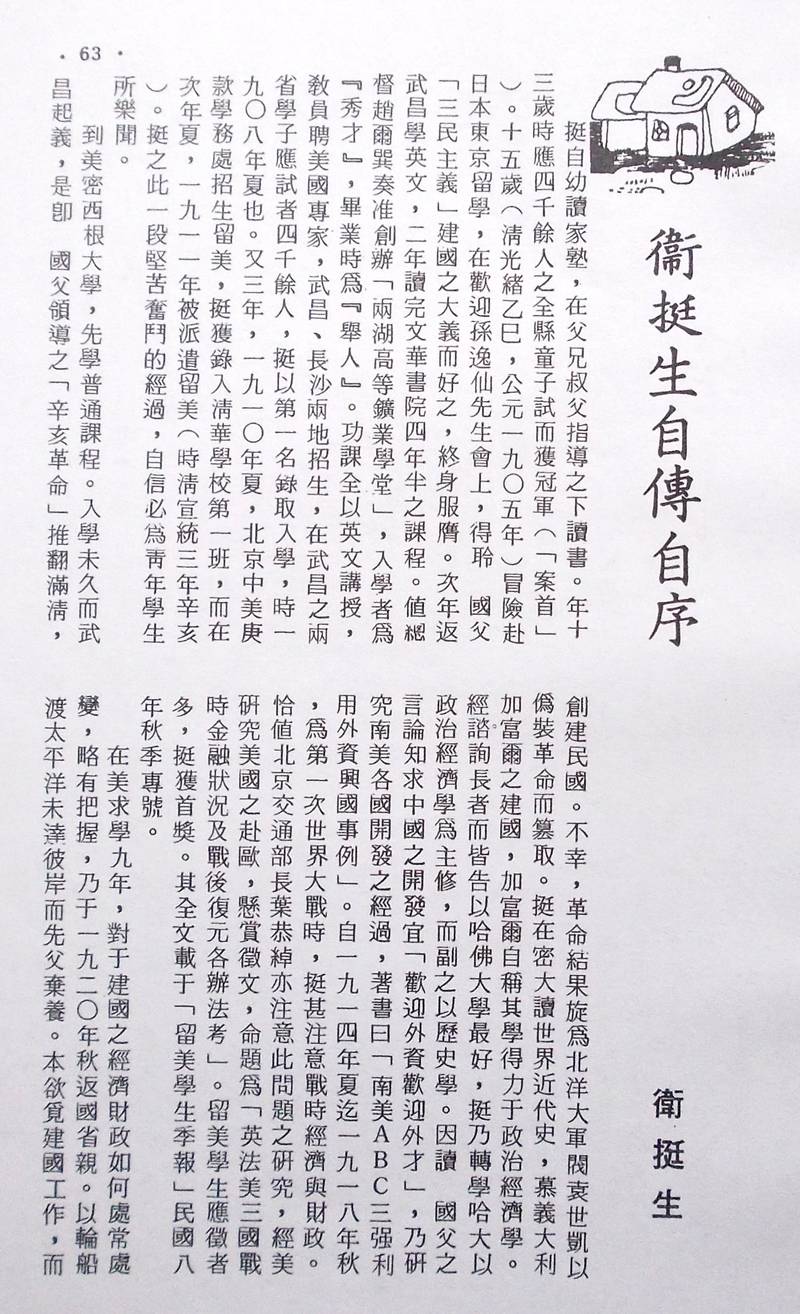 ・63・
衞挺生自傳自序
衛挺生
挺自幼讀家塾，在父兄叔父指導之下讀書。年十
三歲時應四千餘人之全縣童子試而獲冠軍（「案首」
）。十五歲（淸光緒乙巳，公元一九〇五年）冒險赴
日本東京留學，在歡迎孫逸仙先生會上，得聆　國父
「三民主義」建國之大義而好之，終身服膺。次年返
武昌學英文，二年讀完文華書院四年半之課程。値總
督趙爾巽奏准創辦「兩湖高等鑛業學堂」，入學者爲
『秀才』，畢業時爲『舉人』。功課全以英文講授，
敎員聘美國專家，武昌、長沙兩地招生，在武昌之兩
省學子應試者四千餘人，挺以第一名錄取入學，時一
九〇八年夏也。又三年，一九一〇年夏，北京中美庚
款學務處招生留美，挺獲錄入淸華學校第一班，而在
次年夏，一九一一年被派遣留美（時淸宣統三年辛亥
）。挺之此一段堅苦奮鬥的經過，自信必爲靑年學生
所樂聞。
到美密西根大學，先學普通課程。入學未久而武
昌起義，是卽　國父領導之「辛亥革命」推翻滿淸，
創建民國。不幸，革命結果旋爲北洋大軍閥袁世凱以
僞裝革命而篡取。挺在密大讀世界近代史，慕義大利
加富爾之建國，加富爾自稱其學得力于政治經濟學。
經諮詢長者而皆告以哈佛大學最好，挺乃轉學哈大以
政治經濟學爲主修，而副之以歷史學。因讀　國父之
言論知求中國之開發宜「歡迎外資歡迎外才」，乃研
究南美各國開發之經過，著書曰「南美ＡＢＣ三强利
用外資興國事例」。自一九一四年夏迄一九一八年秋
，爲第一次世界大戰時，挺甚注意戰時經濟與財政。
恰値北京交通部長葉恭綽亦注意此問題之研究，經美
研究美國之赴歐，懸賞徵文，命題爲「英法美三國戰
時金融狀況及戰後復元各辦法考」。留美學生應徵者
多，挺獲首獎。其全文載于「留美學生季報」民國八
年秋季專號。
在美求學九年，對于建國之經濟財政如何處常處
變，略有把握，乃于一九二〇年秋返國省親。以輪船
渡太平洋未達彼岸而先父棄養。本欲覓建國工作，而